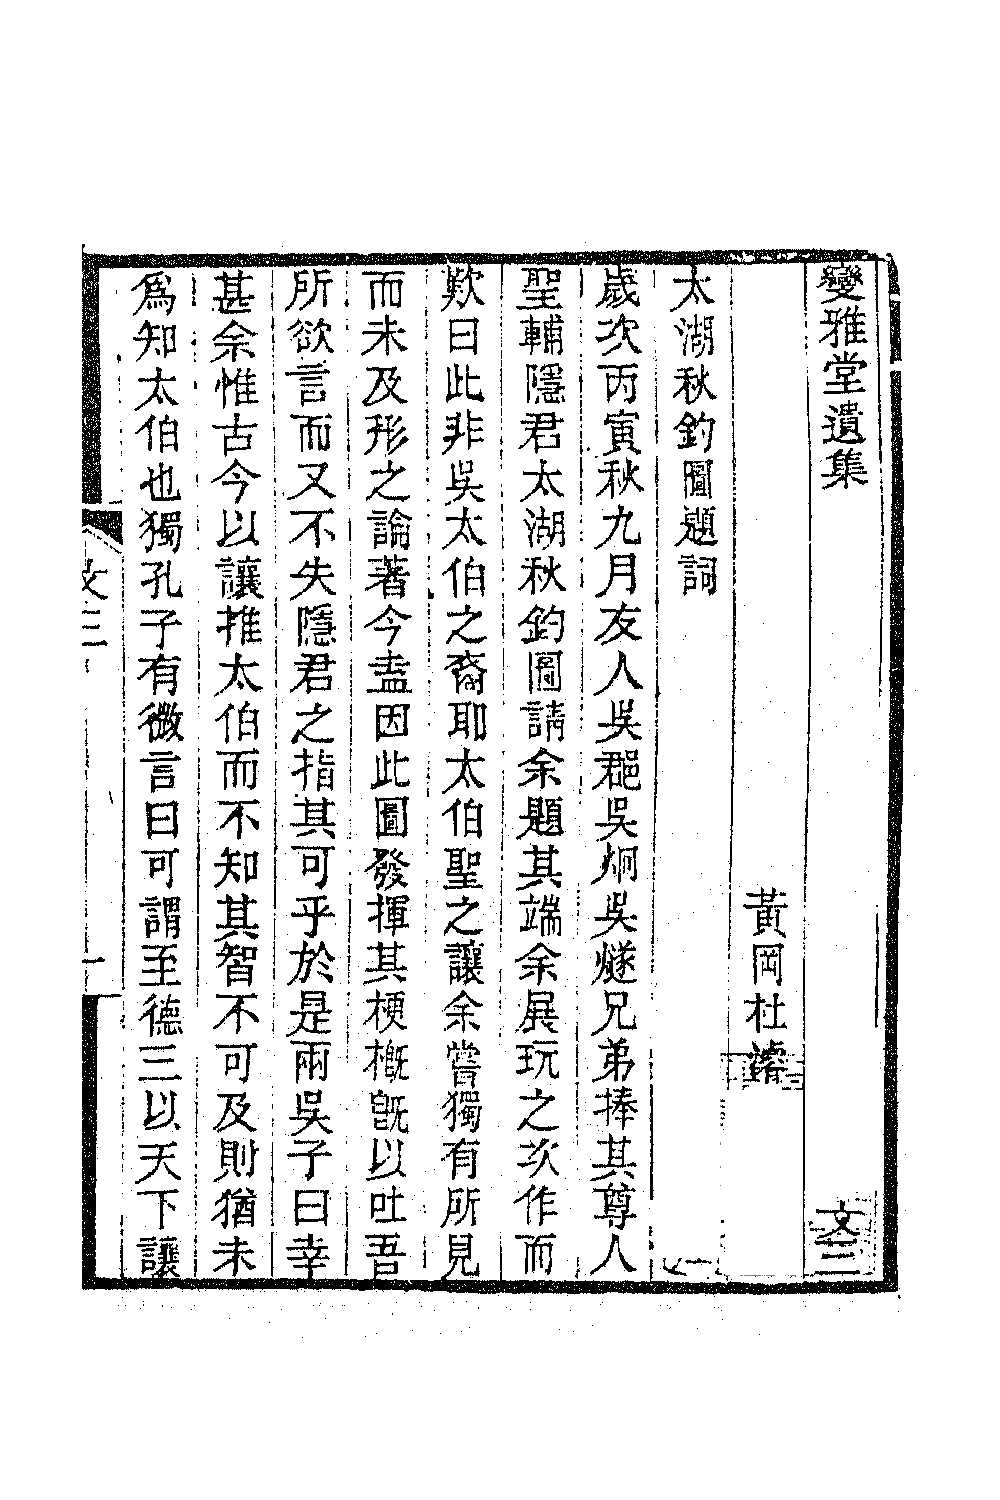 變雅堂遺集　文三
黃岡杜濬
太湖秋釣圖題詞
歲次丙寅秋九月友人吳郡吳炯吳燧兄弟捧其尊人
聖輔隱君太湖秋釣圖請余題其端余展玩之次作而
歎曰此非吳太伯之裔耶太伯聖之讓余嘗獨有所見
而未及形之論著今盍因此圖發揮其梗槪旣以吐吾
所欲言而又不失隱君之指其可乎於是兩吳子曰幸
甚余惟古今以讓推太伯而不知其智不可及則猶未
爲知太伯也獨孔子有微言曰可謂至德三以天下讓
文三
一